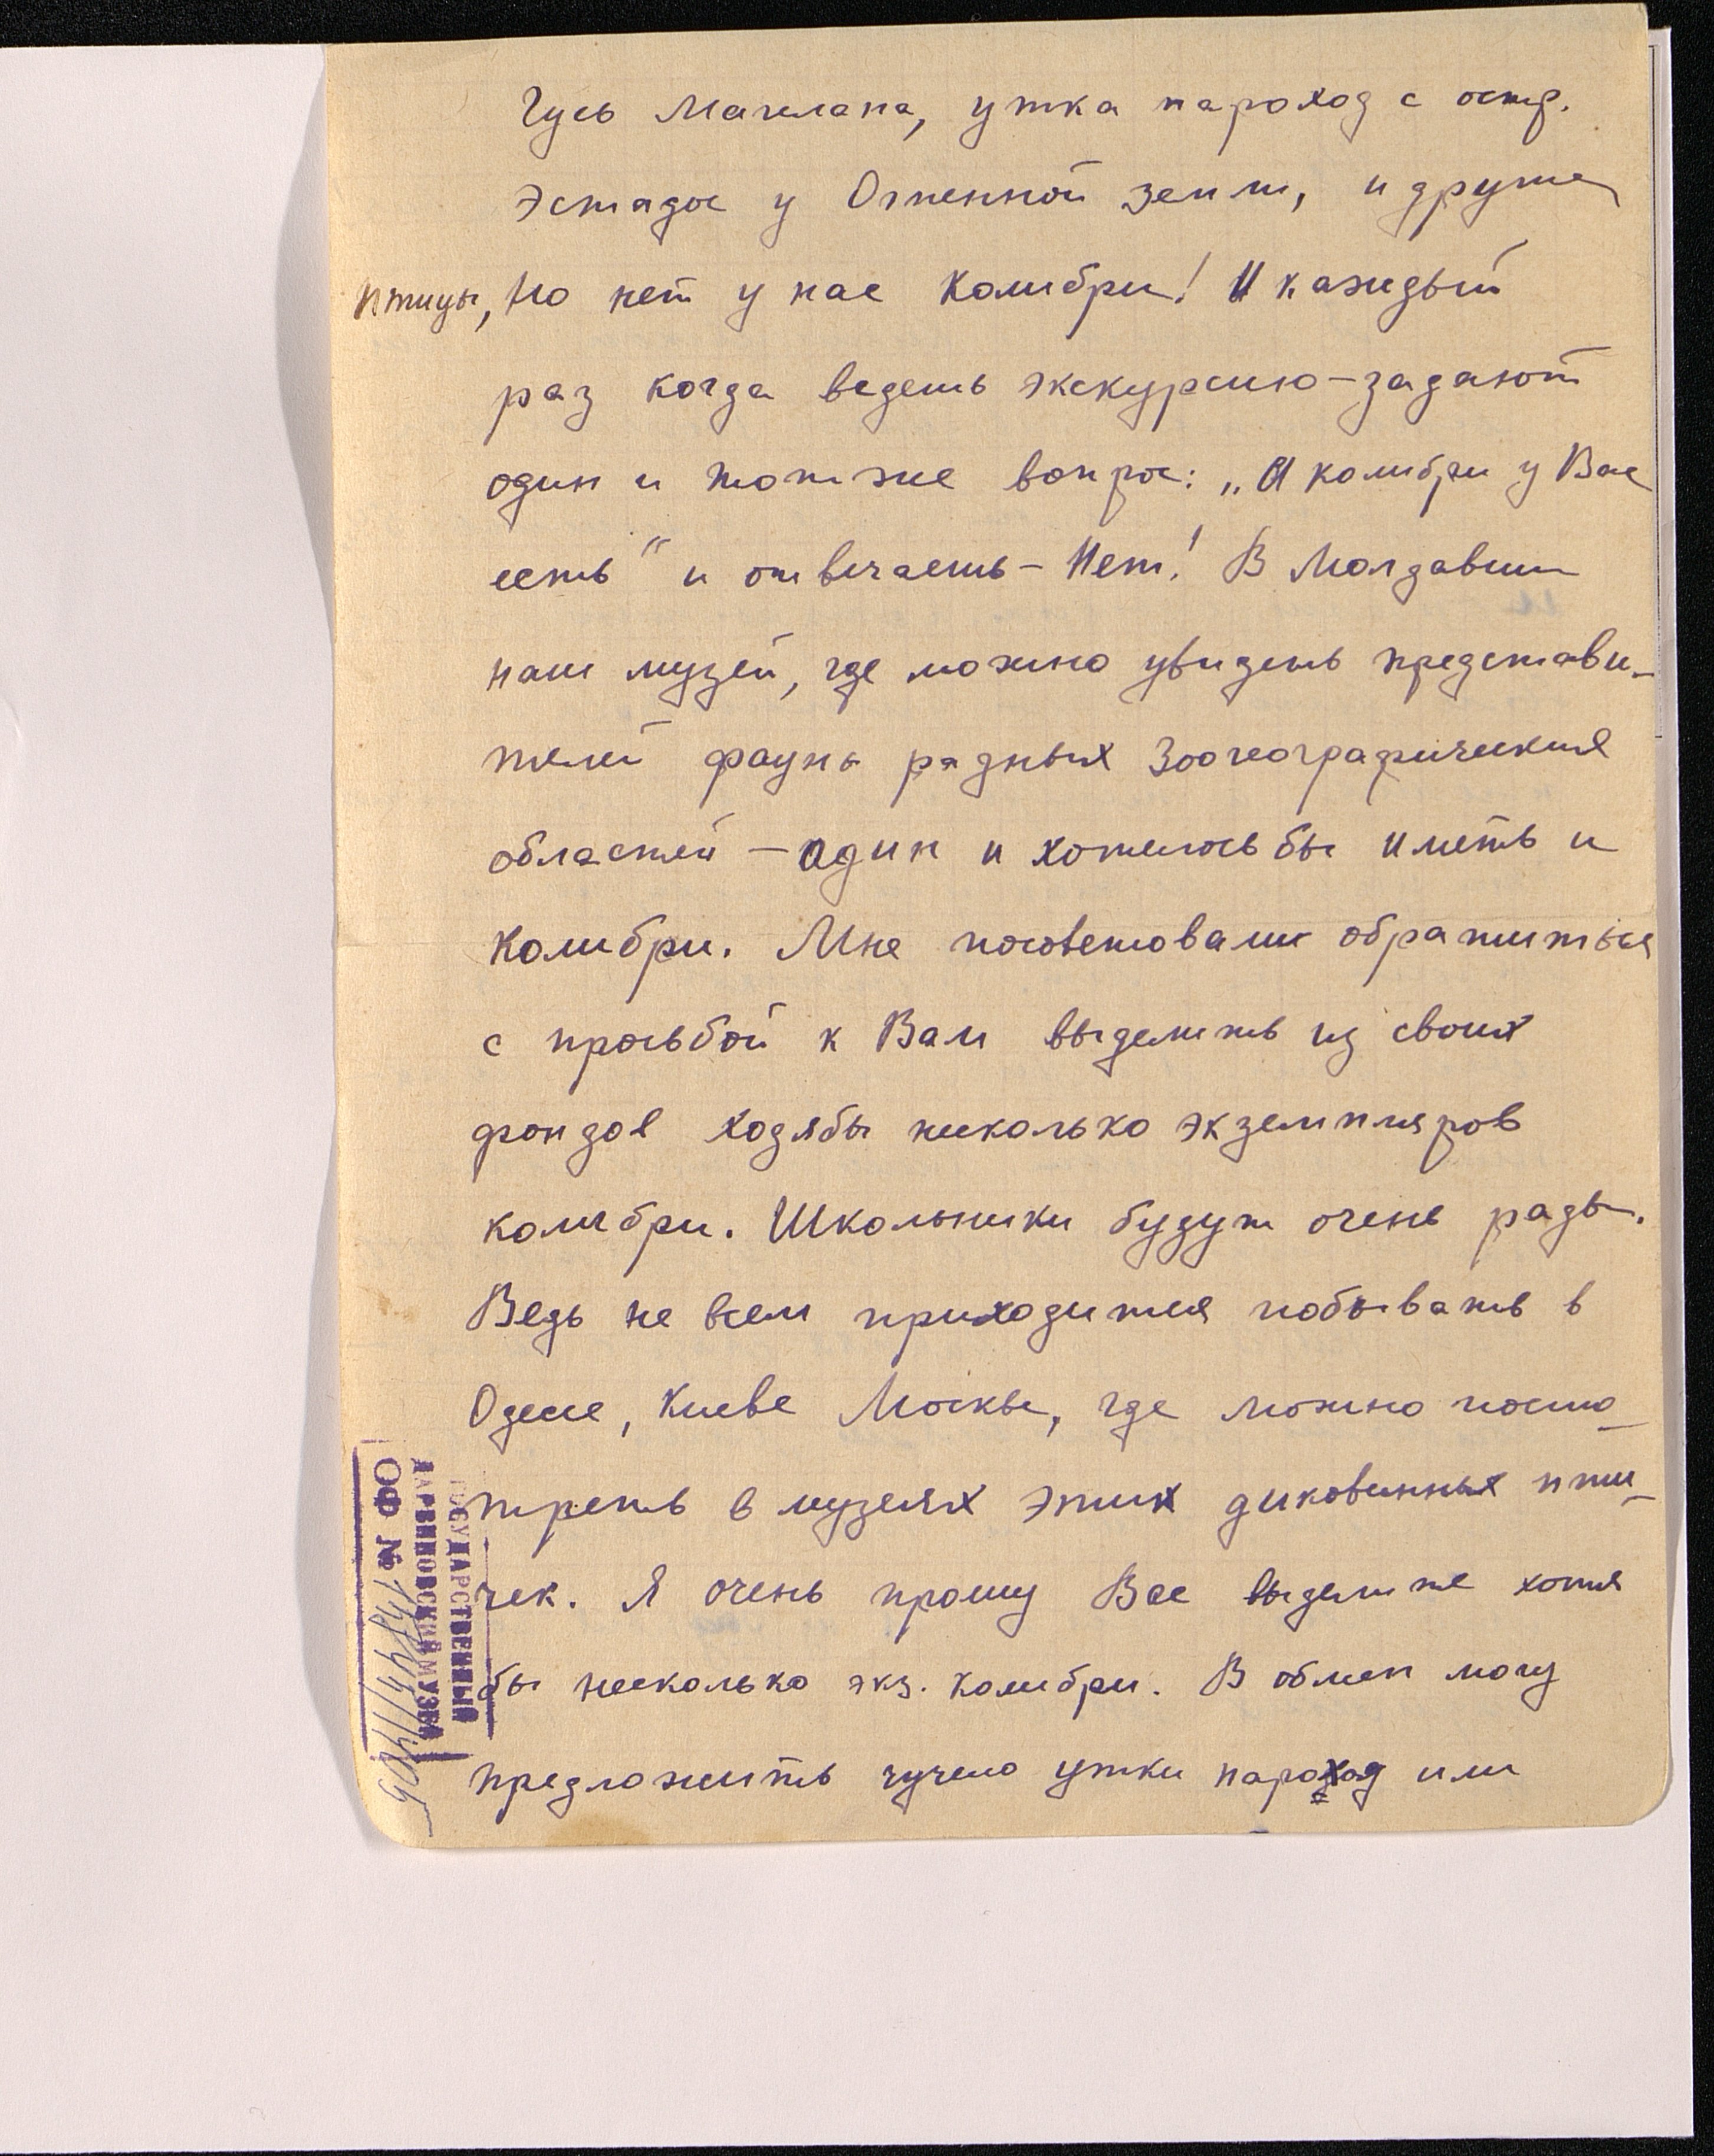 Гусь Магелана, утка пароход с остр.
Эстадос у Огненной земли, и другие
птицы, Но нет у нас колибри! И каждый
раз когда ведешь экскурсию - задают
один и тот же вопрос: „А колибри у Вас
есть" и отвечаешь - Нет! В Молдавии
наш музей, где можно увидеть представи-
телей фауны разных зоогеографических
областей - один и хотелось бы иметь и
колибри. Мне посоветовали обратиться
с просьбой к Вам выделить из своих
фондов ходябы несколько экземпляров
колибри. Школьники будут очень рады.
Ведь не всем приходится побывать в
Одессе, Киеве Москве, где можно посмо-
треть в музеях этих диковинных пти-
чек. Я очень прошу Вас выделите хотя
бы несколько экз. колибри. В обмен могу
предложить чучело утки пароход или
ГОСУДАРСТВЕННЫЙ
ДАРВИНОВСКИЙ МУЗЕЙ
ОФ №